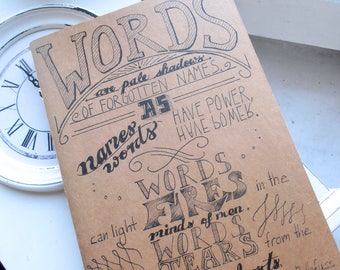 WORDS
are pale shadows
OF FORGOTTEN NAMES.
AS
names HAVE POWER,
words HAVE POWER.
WORDS
can light FIRES in the
minds of men.
WORDS
TEARS from the
hearts